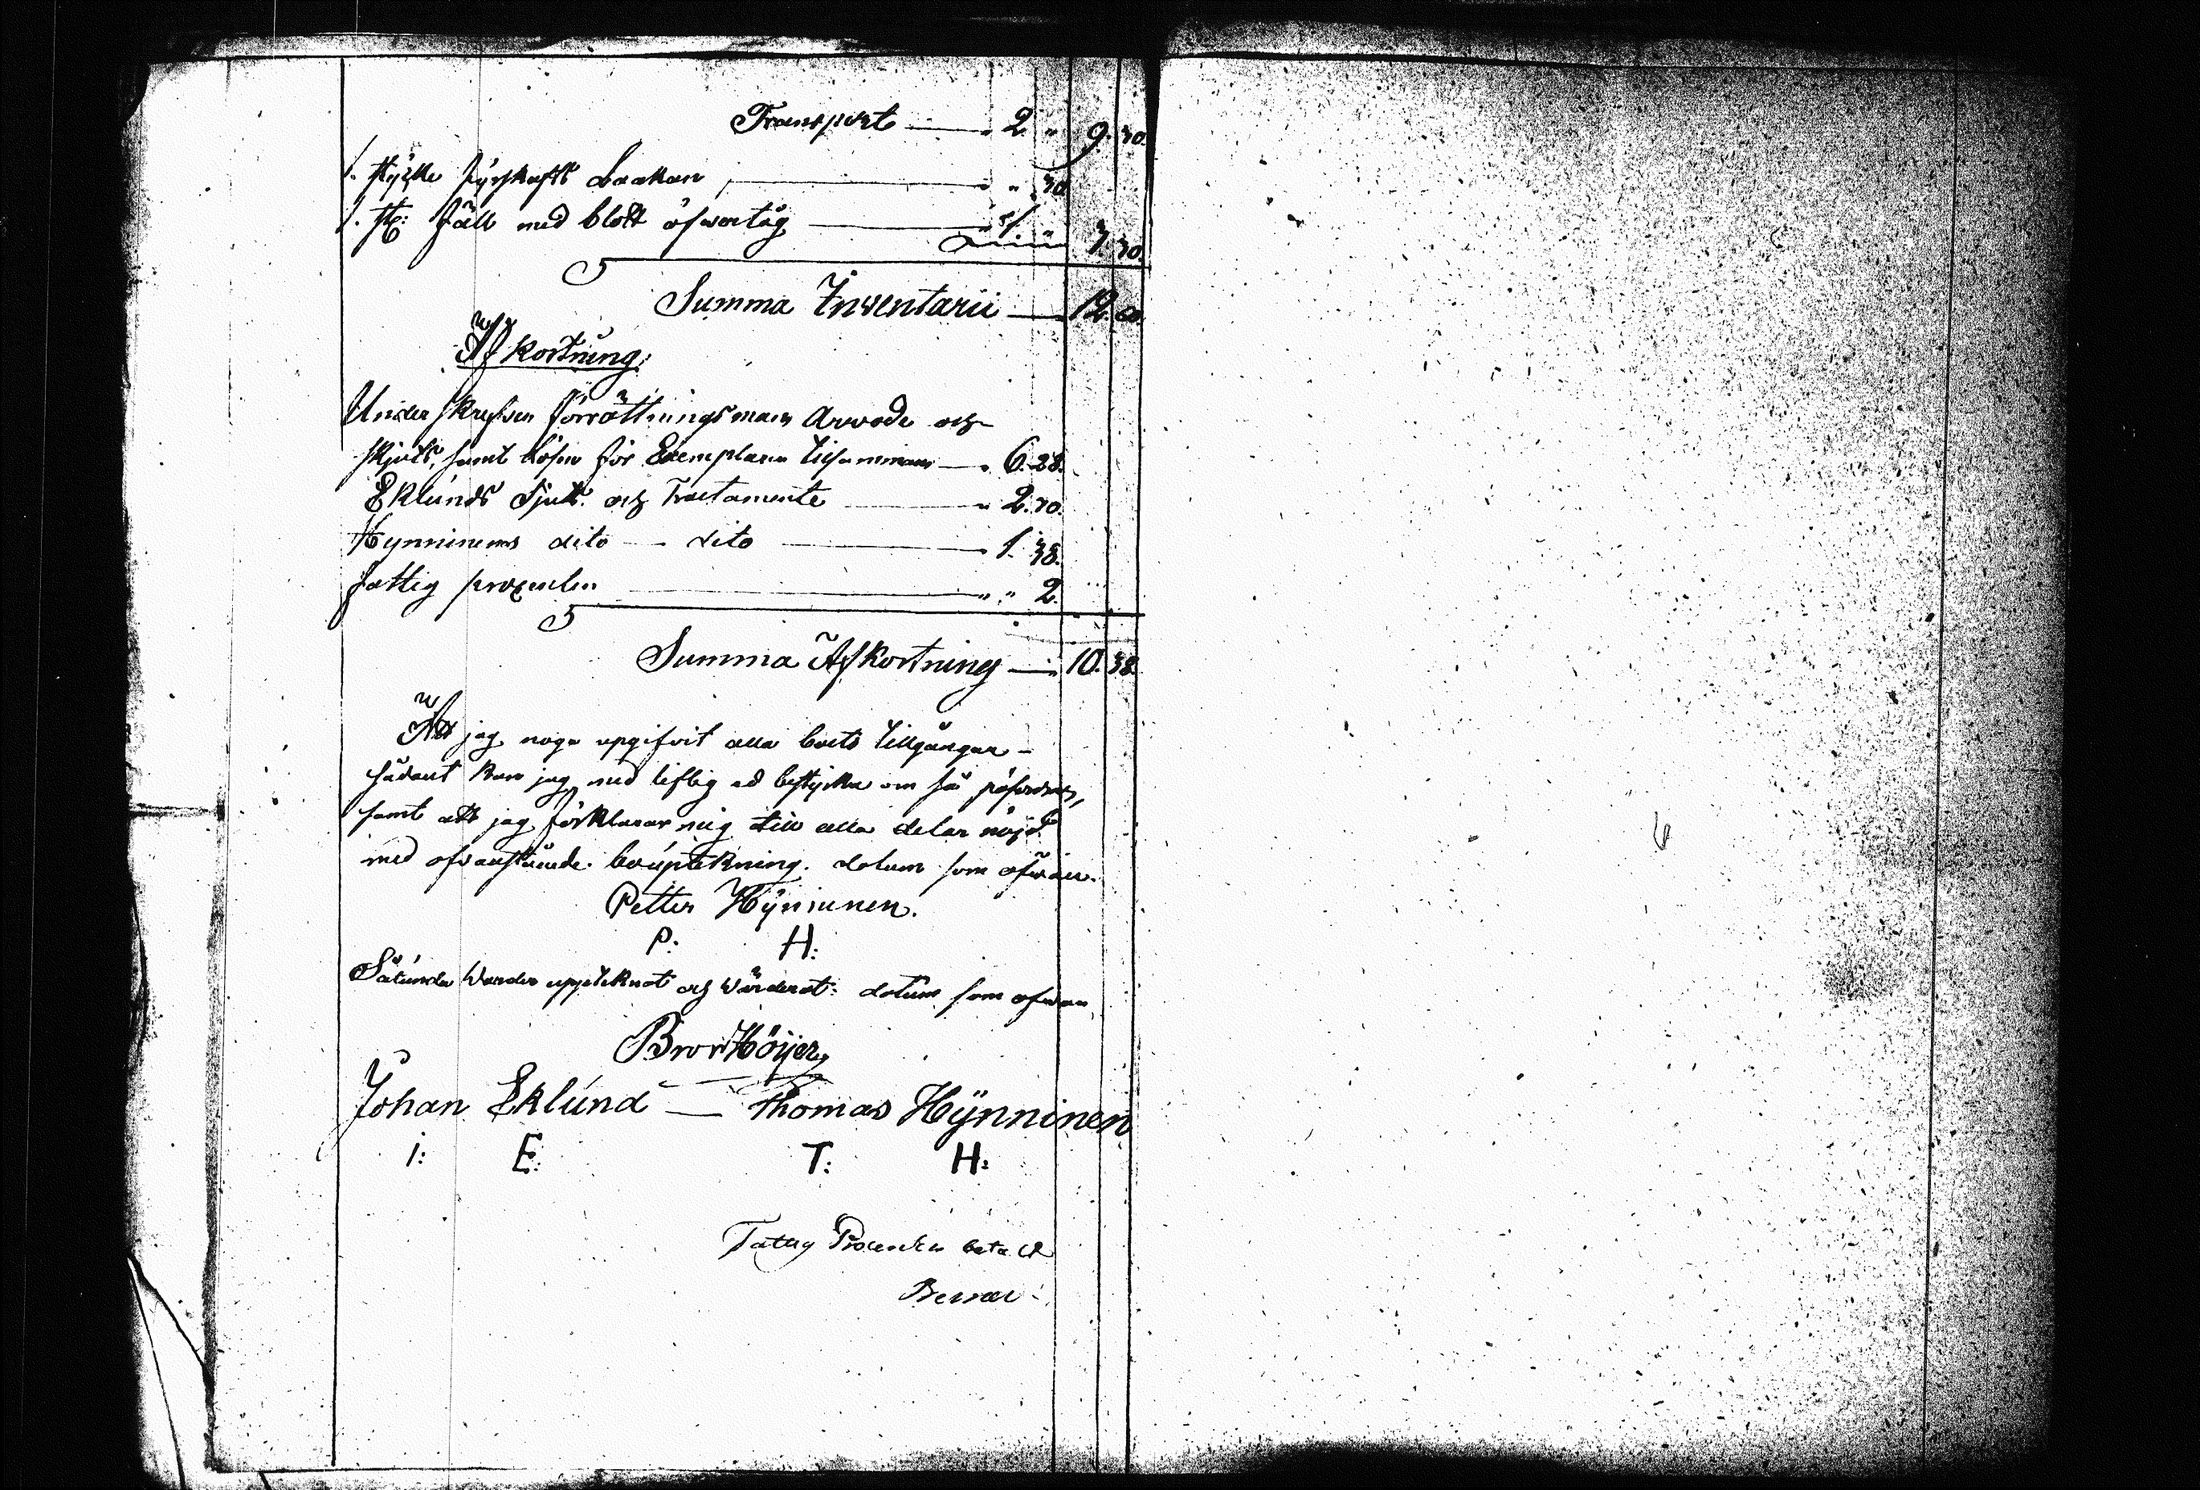 Transport — " 2 " 9. 30.
1. stycke fyrskafts Laakan — " " 30
1. st: fäll med blått öfwertåg — " 1. " 3. 30.
Summa Inventarii — 12. 60.
Afkortning:
Underskrefven förrättningsmans Arvode och
skjuts, samt lösen för Exemplaren tilsammans — " 6. 28.
Eklunds skjuts och Tractamente — " 2. 70.
Hynninens dito — dito — 1. 38.
fattig procenten — " " 2.
Summa Afkortning — 10. 38.
Att jag noga upgifvit alla boets tillgångar
sådant kan jag med liflig ed bestyrka om så påfordras,
samt att jag förklarar mig till alla delar nöjd
med ofvanstående bouptekning. datum som ofwan.
Petter Hynninen.
P: H:
Sålunda warder uppteknat och wärderat: datum som ofwan
Bror Höijer
Johan Eklund — Thomas Hynninen
I: E: T: H:
Fattig Procenten betald